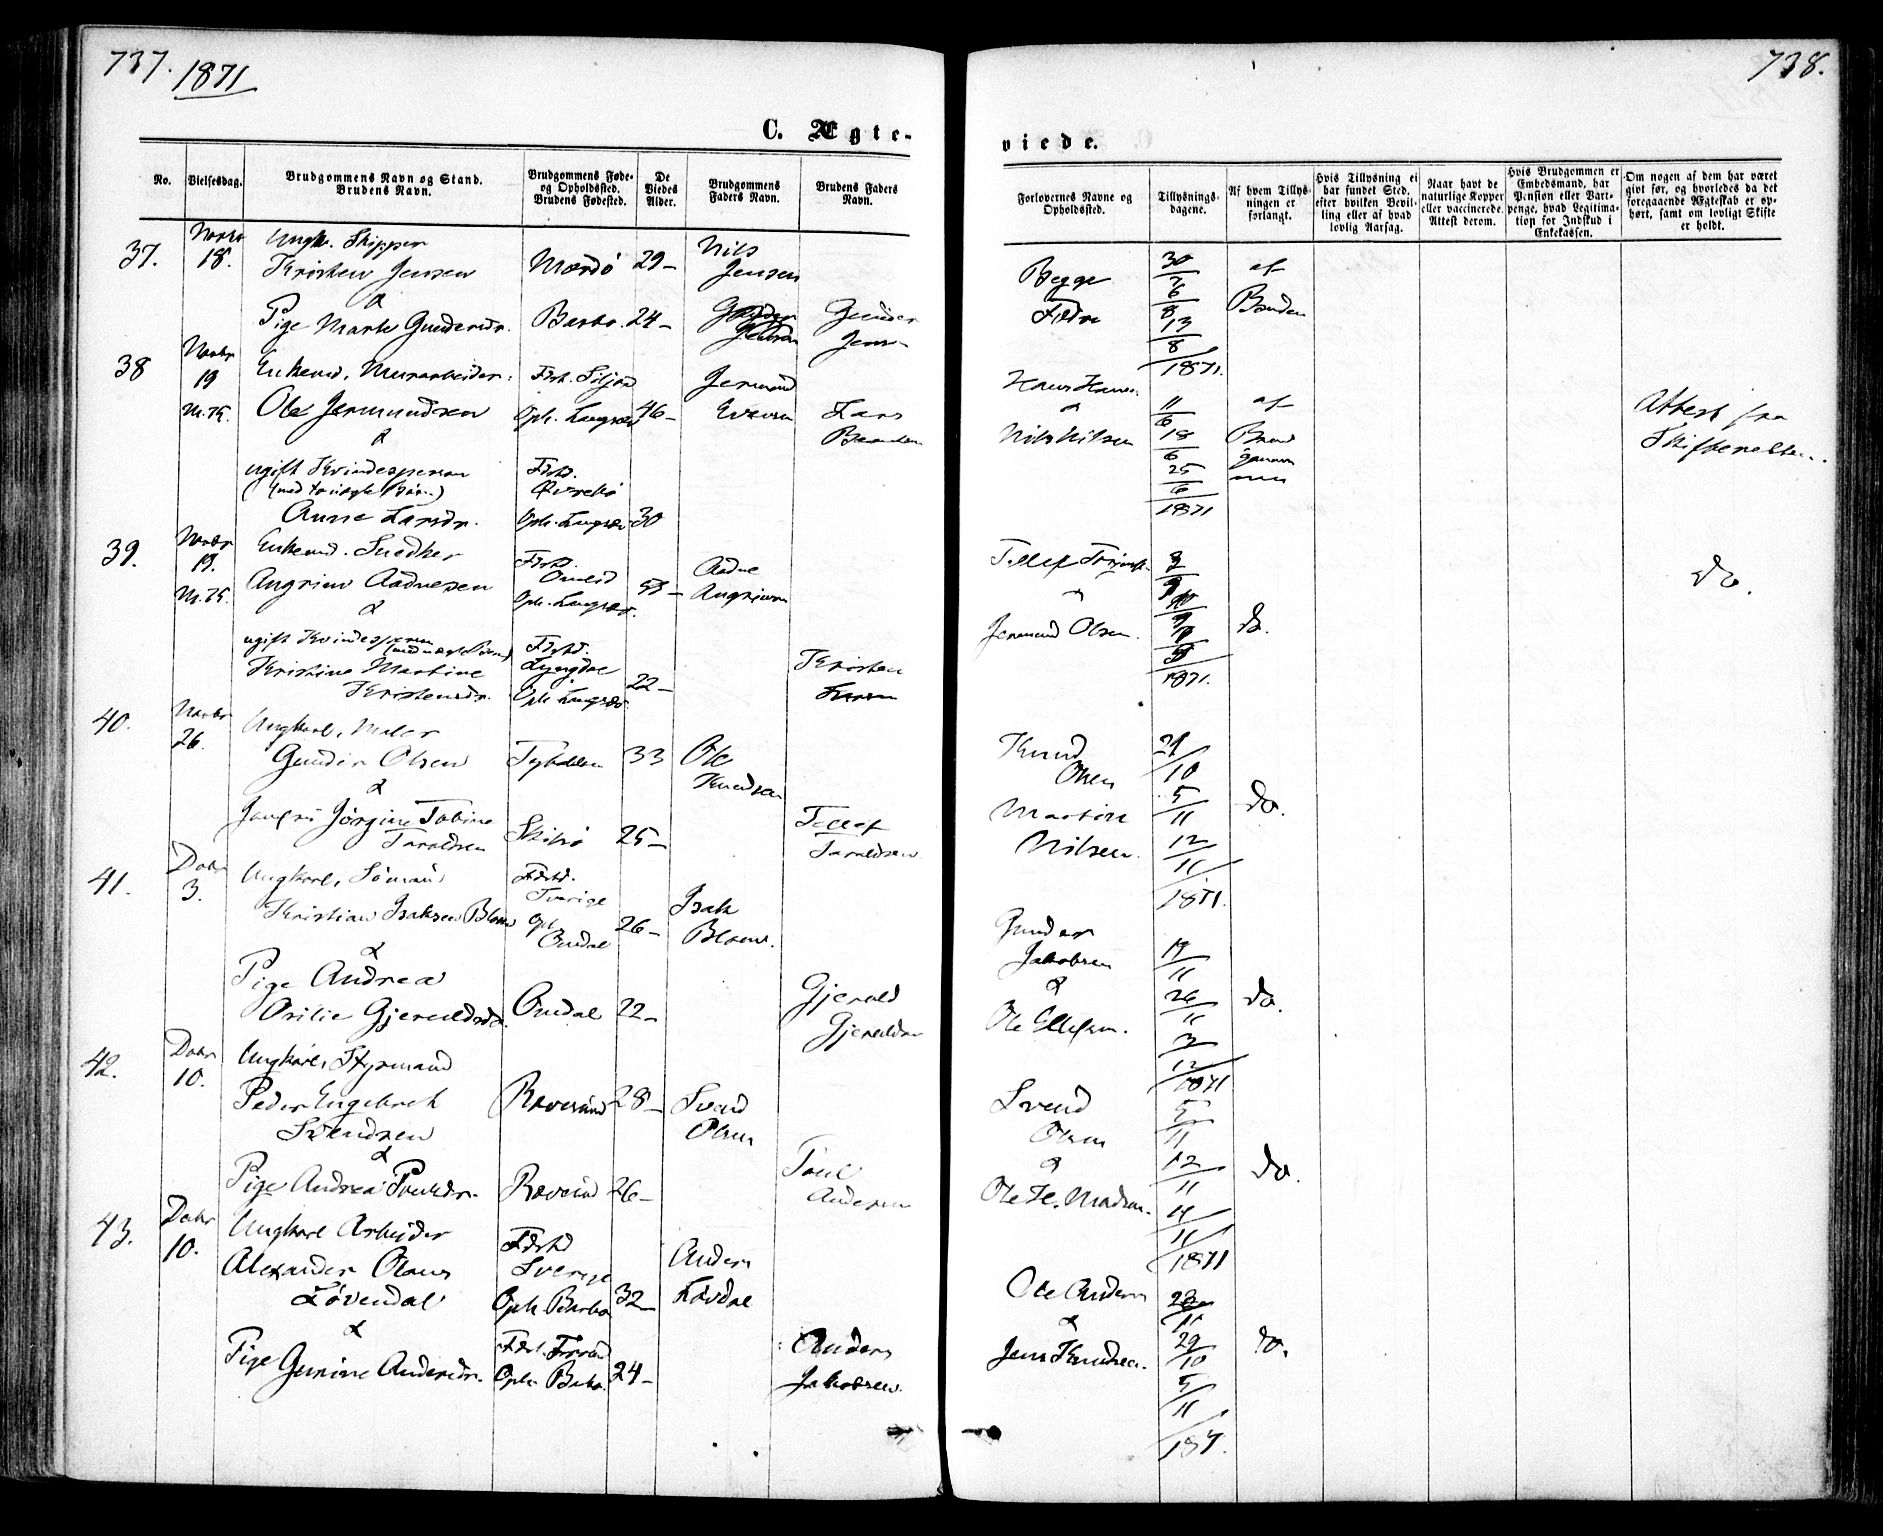 737.
1871
738.
C. Ægte-
viede.
No.
Vielsesdag.
Brudgommens Navn og Stand.
Brudens Navn.
Brudgommens Føde-
og Opholdssted.
Brudens Fødested.
De
Viedes
Alder.
Brudgommens
Faders Navn.
Brudens Faders
Navn.
Forlovernes Navne og
Opholdssted.
Tillysnings-
dagene.
Af hvem Tillys-
ningen er
forlangt.
Hvis Tillysning ei
har fundet Sted,
efter hvilken Bevil-
ling eller af hvad
lovlig Aarsag.
Naar havt de
naturlige Kopper
eller vaccinerede.
Attest derom.
Hvis Brudgommen er
Embedsmand, har
Pension eller Vart-
penge, hvad Legitima-
tion for Indskud i
Enkekassen.
Om nogen af dem har været
gift før, og hvorledes da det
foregaaende Ægteskab er op-
hørt, samt om lovligt Skifte
er holdt.
37.
Novbr
18.
Ungk. Skipper
Kristen Jensen
&
Pige Marte Gundersdr.
Mærdö
Barbo.
29-
24-
Nils
Jensen
Gunder
Jens-
Begge
Fædre
30
7
6
8
13
8
1871.
af
Bruden
38
Novbr
19
M. 75.
Enkemd. Murarbeider.
Ole Jermundsen
&
ugift Kvindesperson
Anne Larsdr.
Fdst. Siljord
Oph. Langsæ
Fdstd.
Oph. Langsæ
46-
30
Jermund
Evensen
Lars
Hans Hansen
&
Nils Nilsen
11
6
18
6
25
6
1871
af
Brud
gommen
Attest fra
Skifteretten.
39.
Novbr
19.
M. 75.
Enkemd. Snedker
Angrim Aadnesen
&
ugift Kvindesperson
Kristine Martine
Kristensdr.
Fdstd.
Oph. Langsæ.
Fdstd.
Lyngdal
Oph. Langsæ.
22-
Aadne
Angrimsen
Kristen
Tellef
&
Jermund Olsen.
3
9
10
9
1871.
do.
do.
40.
Novbr
26.
Ungkarl, Maler
Gunder Olsen
&
Jomfru Jörgine Tobine
Taraldsen
33
25-
Ole
Knudsen
Tellef
Taraldsen
Knud
Olsen
Martin
Nilsen.
10
5
11
12
11
1871.
do.
41.
Decbr
3.
Ungkarl, Sömand
Kristian Isaksen Blom
&
Pige Andrea
Otilie Gjeruldsdr.
Fdstd.
Sverige
Oph.
Omdal
Omdal
26-
22-
Isak
Blom.
Gjeruld
Gjeruldsen
Gunder
Jakobsen
&
Ole Ellefsen.
19
11
26
11
3
12
1871
do.
42.
Decbr
10.
Ungkarl, Styrmand
Peder Engebret
Svendsen
&
Pige Andrea Poulsdr.
Revesund
Revesund
28-
26-
Svend
Olsen
Poul
Andersen
Svend
Olsen
&
Ole H. Madsen.
5
11
12
11
19
11
1871
do.
43.
Decbr
10.
Ungkarl Arbeider
Alexander Olaus
Lövendal
&
Pige Gurine Andersdr.
Fdstd
Sverige
Oph. Barbo
Oph. Barbo.
32-
24-
Anders
Lövdal
Anders
Jakobsen.
Ole Anders
&
Jens Knudsen.
29
10
5
11
do.